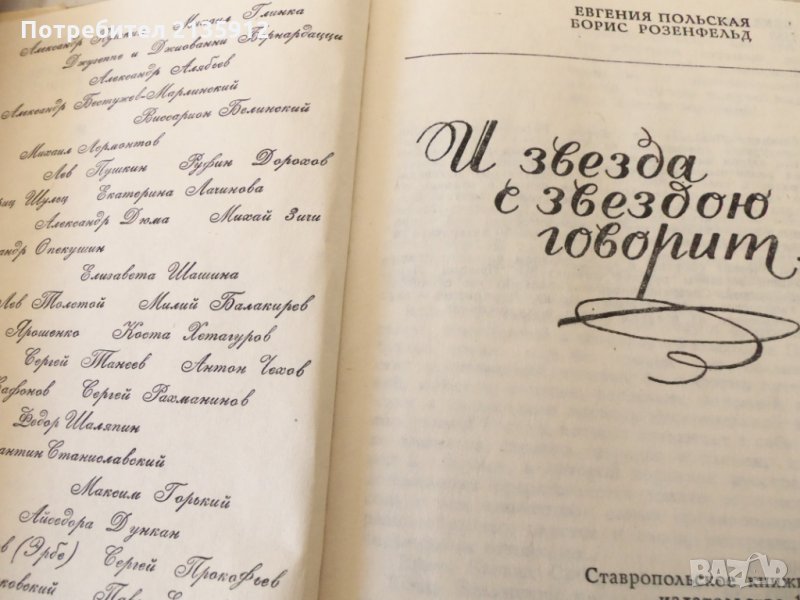 Потребител 2135912
Михаил Глинка
Александр Пушкин
Джузеппе и Джиованни Бернардацци
Александр Алябьев
Александр Бестужев-Марлинский
Виссарион Белинский
Михаил Лермонтов
Лев Пушкин Руфин Дорохов
риц Шульц Екатерина Лачинова
Александр Дюма Михай Зичи
андр Опекушин
Елизавета Шашина
Лев Толстой Милий Балакирев
Ярошенко Коста Хетагуров
Сергей Танеев Антон Чехов
Сафонов Сергей Рахманинов
Федор Шаляпин
антин Станиславский
Максим Горький
Айседора Дункан
в (Эрбе) Сергей Прокофьев
ковский
ЕВГЕНИЯ ПОЛЬСКАЯ
БОРИС РОЗЕНФЕЛЬД
И звезда
с звездою
говорит
Ставропольское книжн
издательство
BAZAR
bg